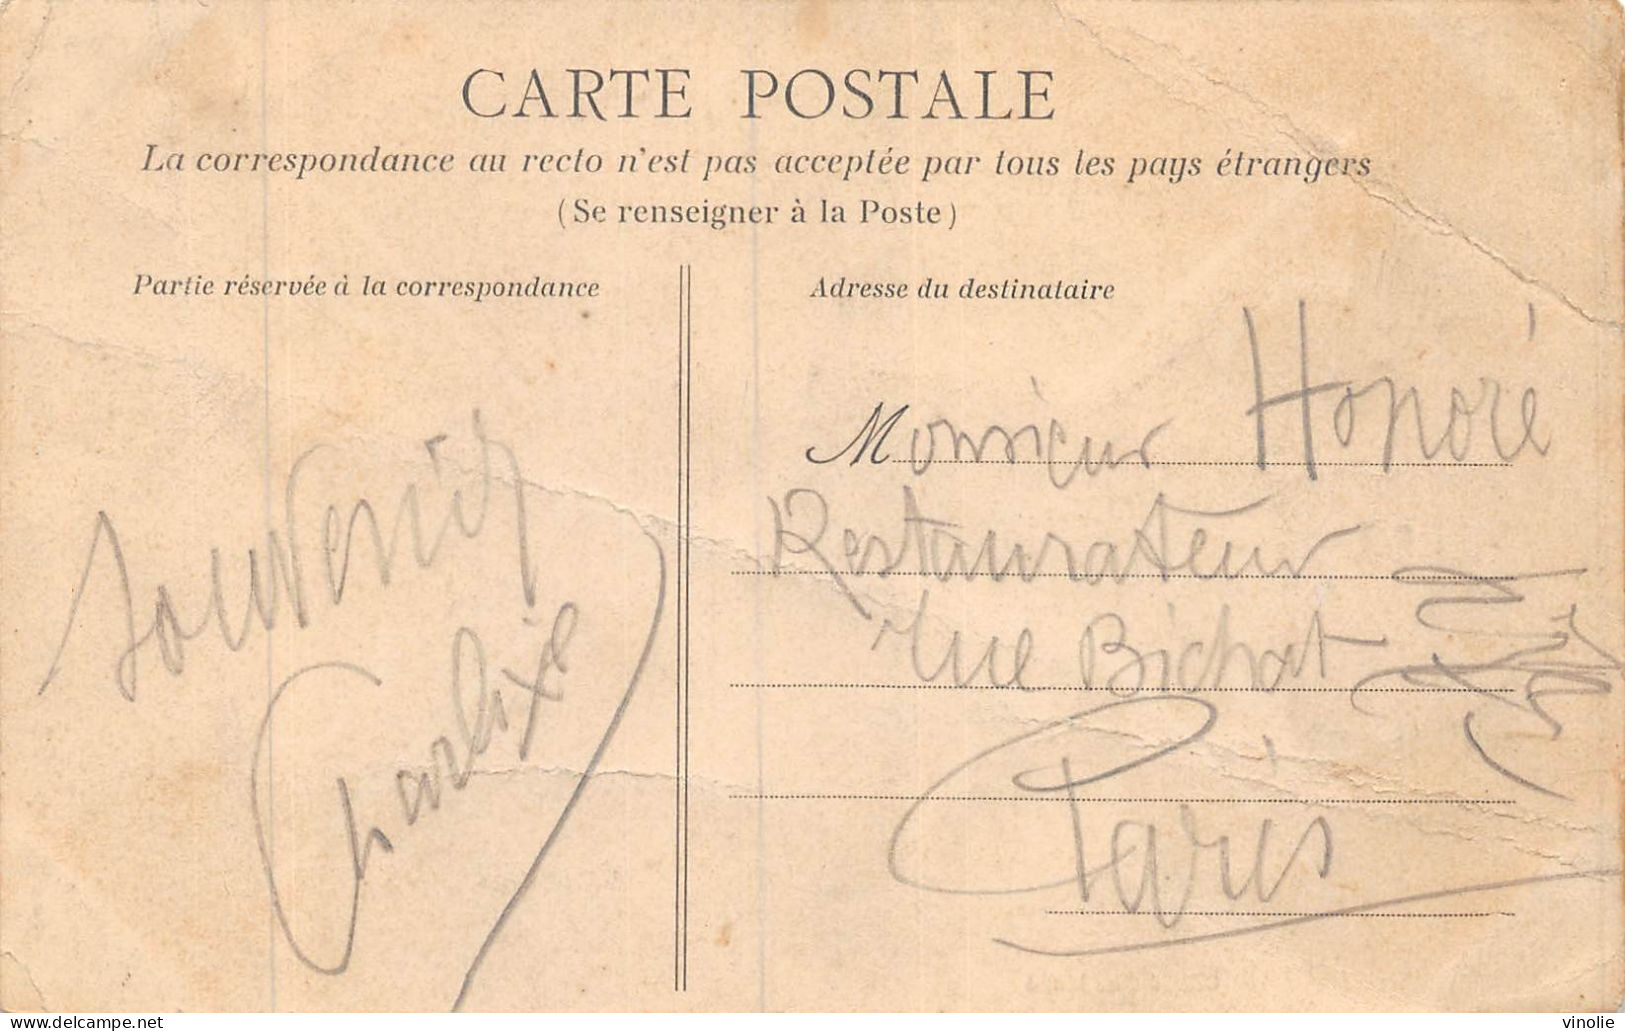 CARTE POSTALE
La correspondance au recto n'est pas acceptée par tous les pays étrangers
(Se renseigner à la Poste)
Partie réservée à la correspondance
Souvenir
Adresse du destinataire
Monsieur Honoré
Restaurateur
rue Bichat
Paris
www.delcampe.net
vinolie